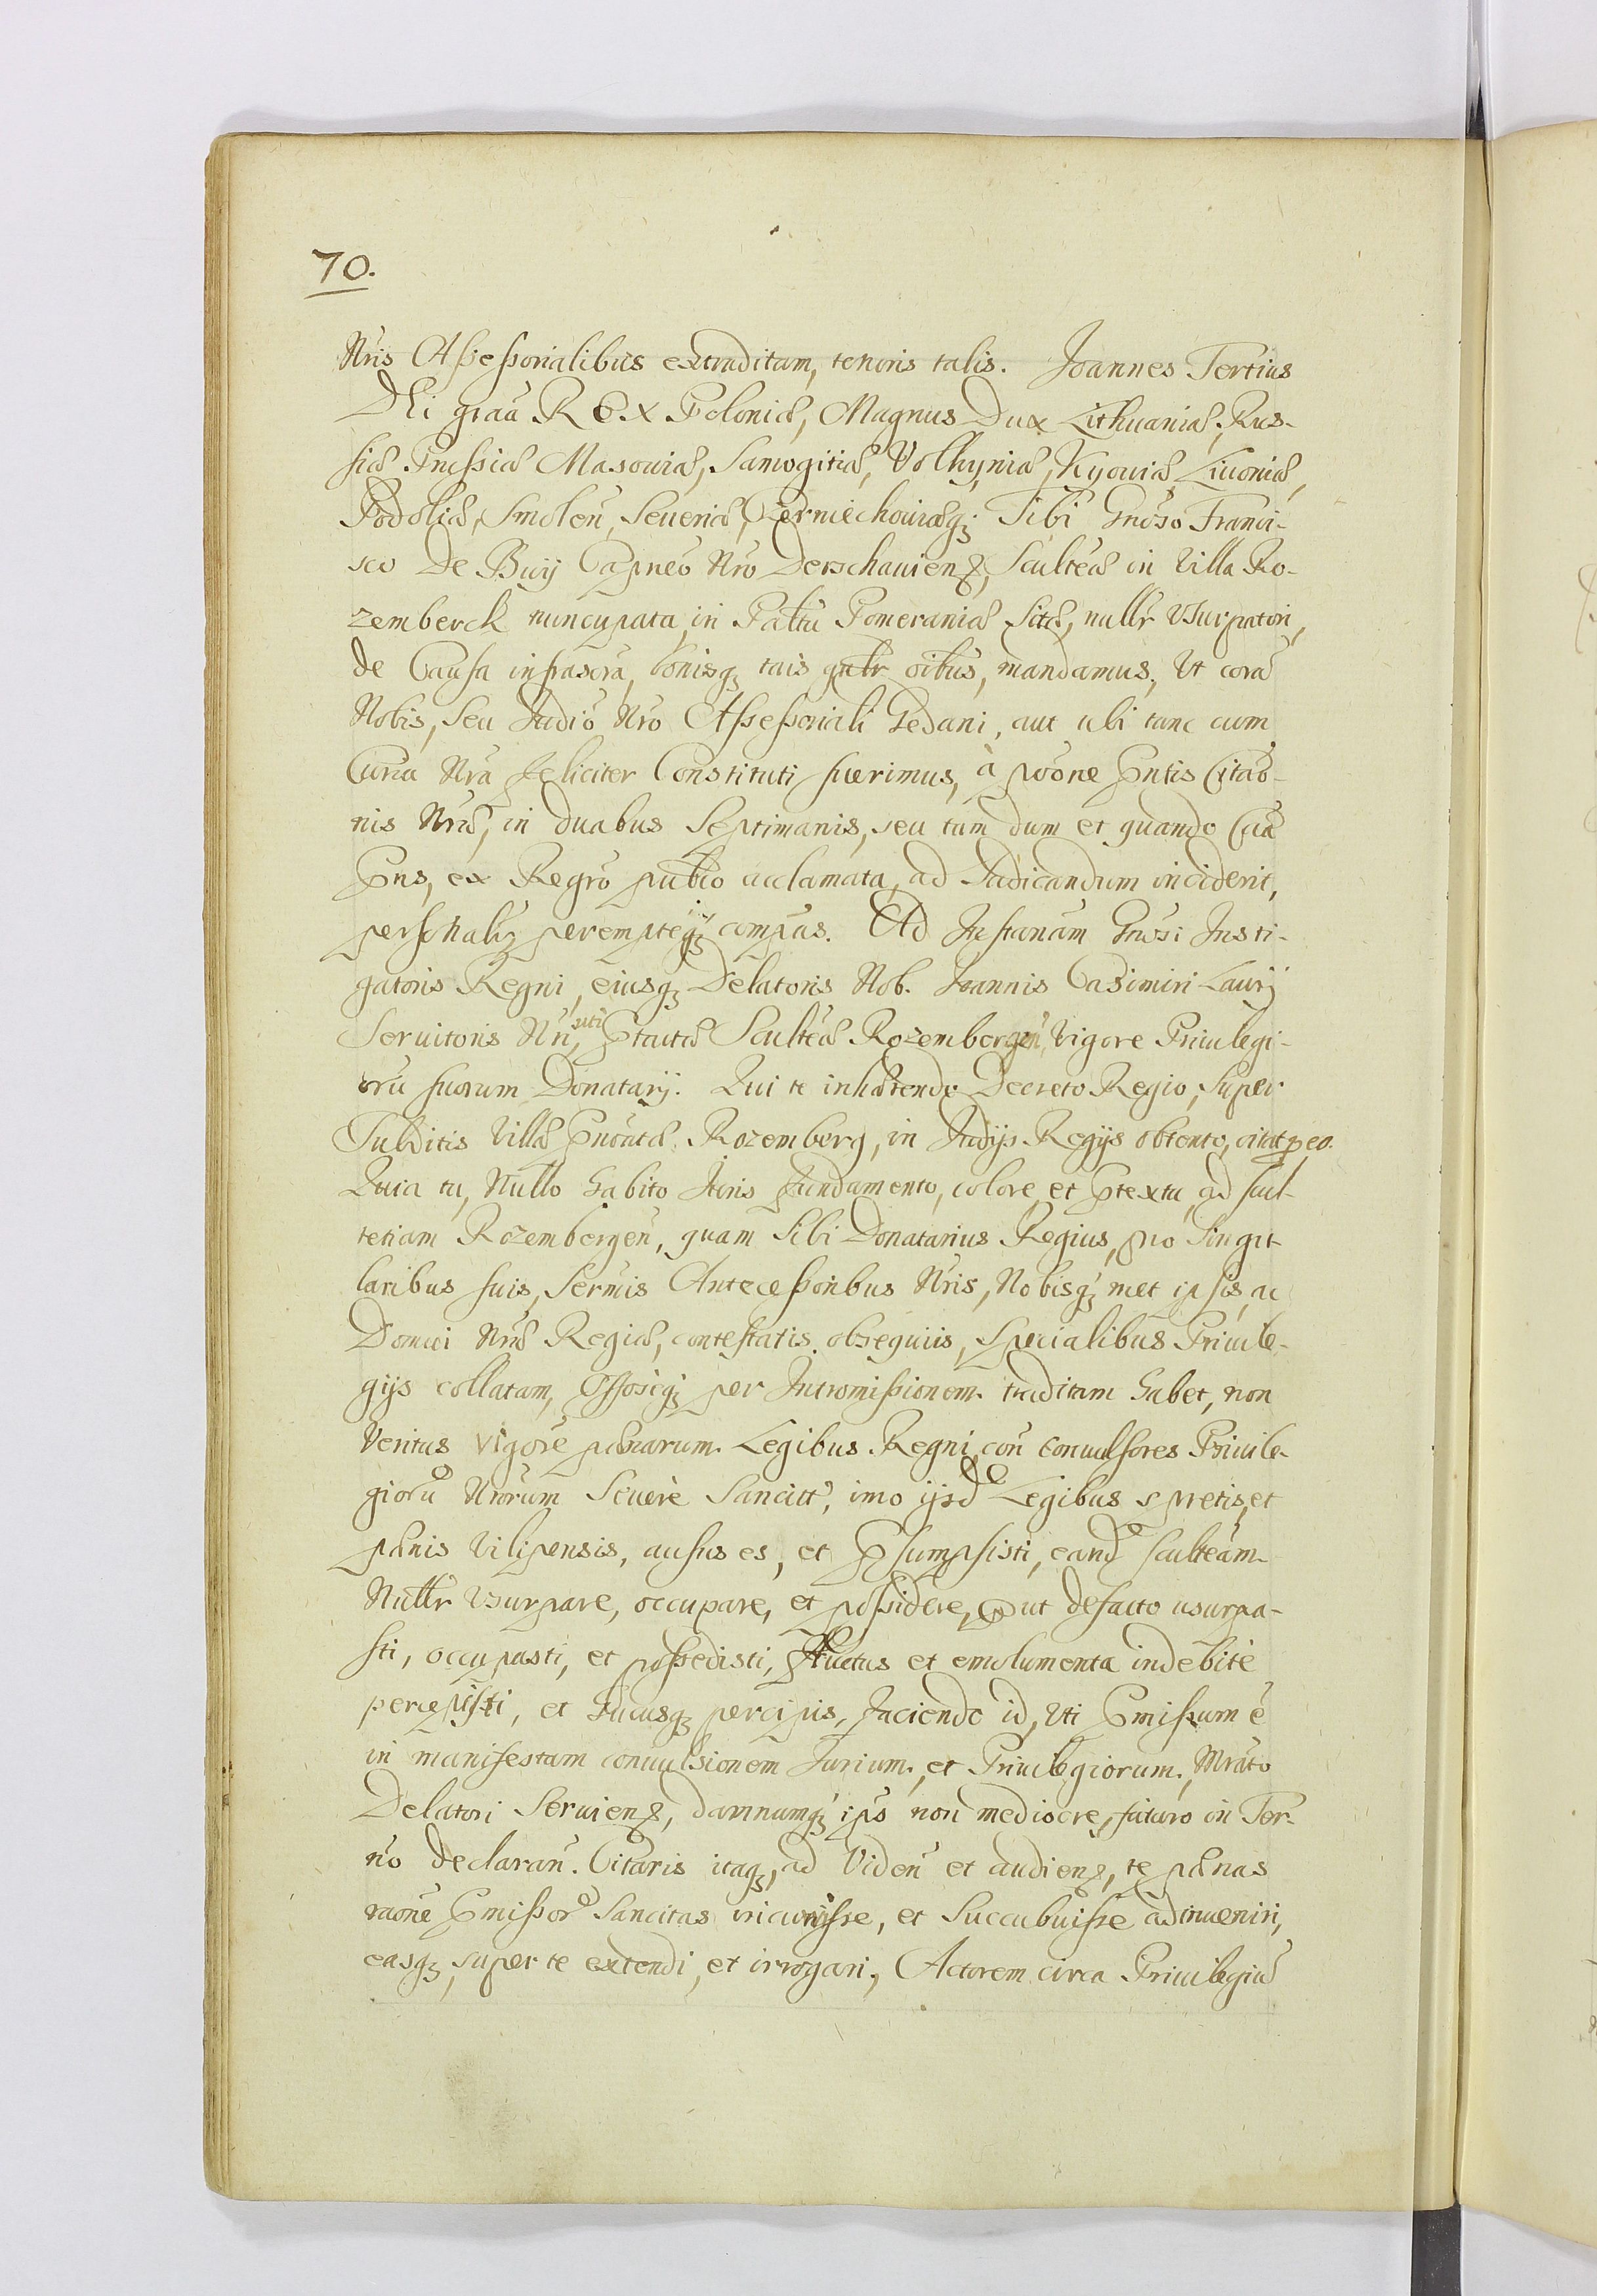 70.
Nris Assessorialibus extraditam, tenoris talis. Joannes Tertius
DEi graã REX Poloniæ, Magnus Dux Lithuaniæ, Rus-
siæ Prussiæ Masoviæ, Samogitiæ, Volhyniæ, Kyoviæ Livoniæ,
Podoliæ, Smolen̄, Severiæ, Czerniechoviæqȝ Tibi Gnoso Franci-
sco De Buÿ Capneo Nro Derschaviens, Scultetiæ in Villa Ro-
zemberck nuncupata, in Paltu Pomeraniæ Sitæ, nullr Usurpatori,
de Causa infrascra, bonisqȝ tuis gnlr oibus, mandamus, Ut corã
Nobis, seu Judio Nro Assessoriali Gedani, aut ubi tunc cum
Curia Nra feliciter Constituti fuerimus, à poone Pntis Citao-
nis Nræ, in duabus Septimanis, seu tum dum et quando Cã
Pns, ex Regro publo acclamata, ad Judicandum inciderit,
personalr perempteqȝ compas. Ad Instanam Gnosi Insti-
gatoris Regni, eiusqȝ Delatoris Nob. Joannis Casimiri Laurÿ
Servitoris Nri, uti Ptactæ Scultetiæ Rozembergen̄, Vigore Privilegi-
orũ suorum Donatarÿ. Qui te inhærendo Decreto Regio, super
Subditis Villæ Pnoatæ Rozemberg, in Judÿs Regÿs obtento, citat p eo.
Quia tu, Nullo habito Juris fundamento, colore et Ptextu, ad scul-
tetiam Rozembergen̄, quam Sibi Donatarius Regius, pro Singu-
laribus suis, Sermis Antecessoribus Nris, Nobisqȝ met ipsis, ac
Domui Nræ Regiæ, contestatis obsequiis, Specialibus Privile-
gÿs collatam, Offoseqȝ per Intromissionem traditam habet, non
Veritus vigore pænarum Legibus Regni, con̄ convulsores Privile-
giorũ Nrorum Severè Sancitt, imo ÿsd Legibus spretis, et
pænis Vilipensis, ausus es, et Psumpsisti, eand sculteam
Nullr usurpare, occupare, et possidere, Put defacto usurpa-
sti, occupasti, et possedisti, fructus et emolumenta indebitè
percepisti, et hucusqȝ percipis, faciendo id, Uti Pmissum ẽ
in manifestam convulsionem Jurium, et Privilegiorum, Mrato
Delatori Serviens, damnumqȝ ipso non mediocre, futuro in Ter-
no declaran̄. Citaris itaqȝ, ad Viden̄ et audiens, te pænas
raone Pmissor Sancitas incurrisse, et Succubuisse adinveniri,
easqȝ, super te extendi, et irrogari, Actorem circa Privilegiũ